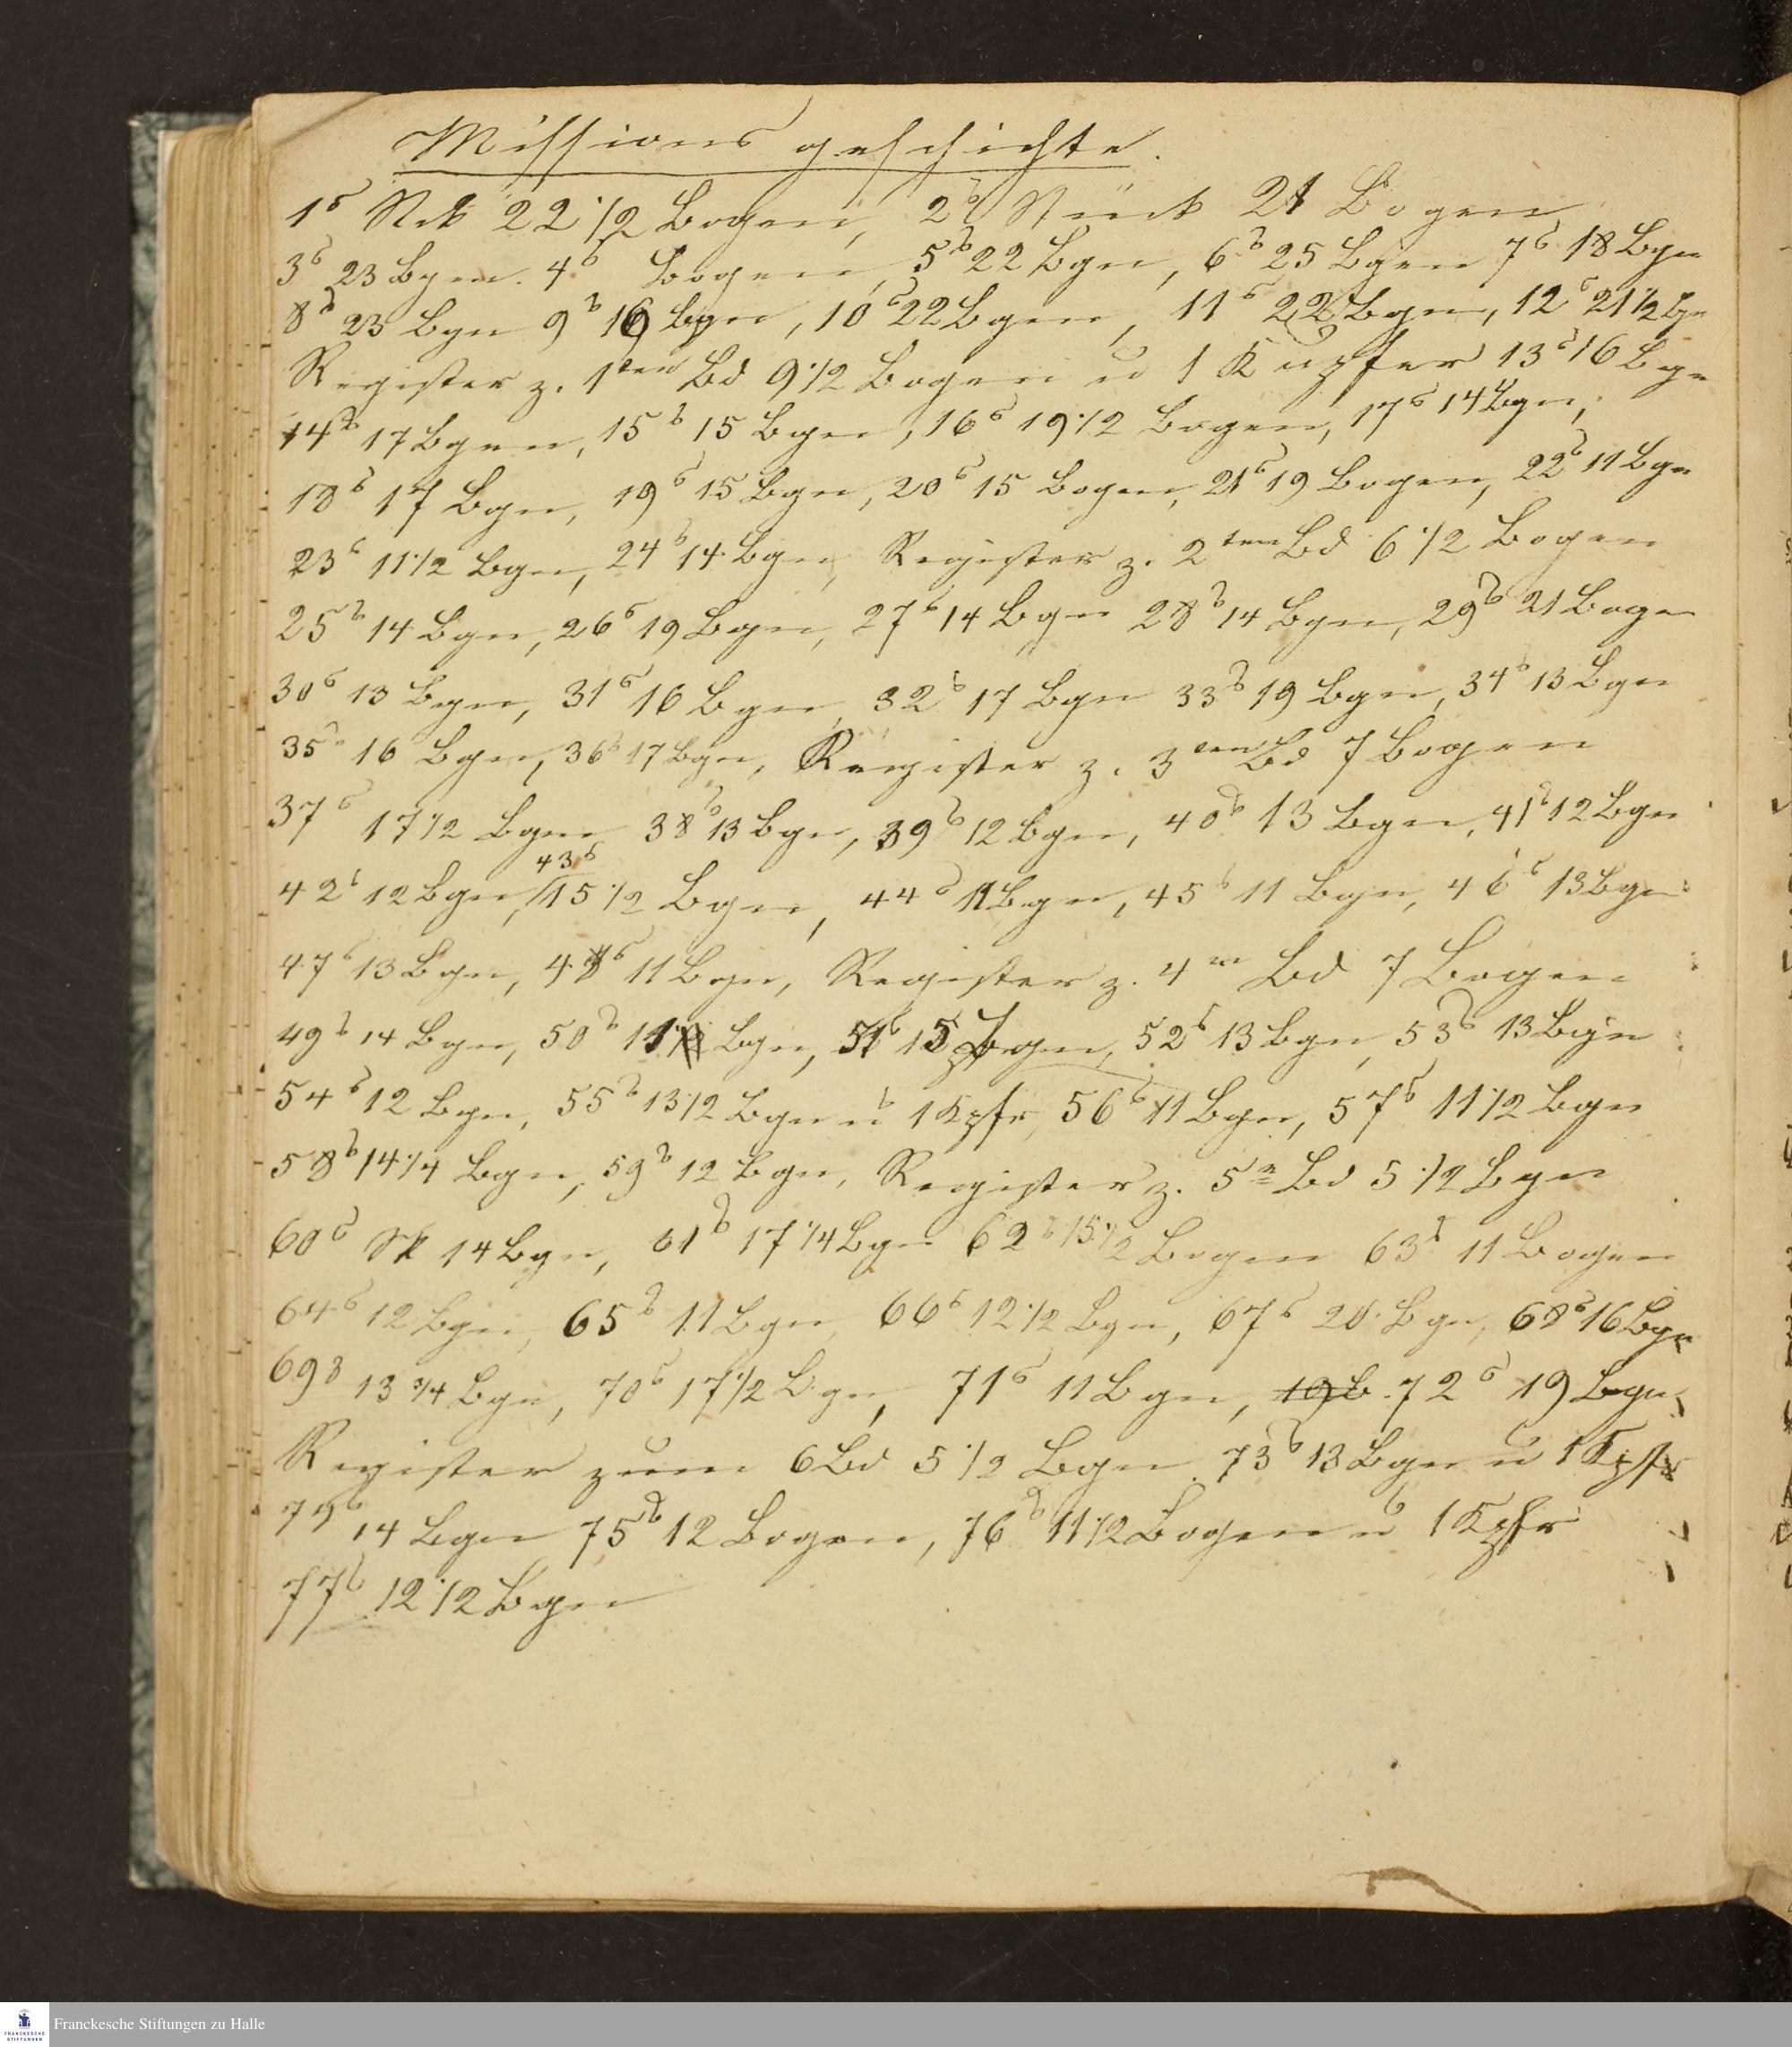 Missionsgeschichte.
1s Stck 22 1/2 Bogen, 2s Stück 21 Bogen
3s 23 Bgen. 4s Bogen, 5s 22 Bgn, 6s 25 Bgen 7s 18 Bgn
8s 23 Bgn 9s Bgn, 10s 22 Bgen, 11s 22 Bgn, 12s 21 1/2 Bgn
Register z. 1ten Bd 9 1/2 Bogen u 1 Kupfer 13s 16 Bgn
14s 17 Bgen, 15s 15 Bgn, 16s 19 1/2 Bogen, 17s 14 Bgn,
18s 17 Bgn, 19s 15 Bgn, 20s 15 Bogen, 21s 19 Bogen, 22s 11 Bgn
23s 11 1/2 Bgn, 24s 14 Bgn, Register z. 2ten Bd 6 1/2 Bogen
25s 14 Bgn, 26s 19 Bgn, 27s 14 Bgn 28s 14 Bgn, 29s 21 Bogn
30s 13 Bgn, 31s 16 Bgn, 32s 17 Bgn 33s 19 Bgn, 34s 13 Bgn
35s 16 Bgn, 36s 17 Bgn, Register z. 3ten Bd 7 Bogen
37s 17 1/2 Bgn 38s 13 Bgn, 39s 12 Bgn, 40s 13 Bgn, 41s 12 Bgn
42s 12 Bgn, 43s 15 1/2 Bgn, 44s 11 Bgn, 45s 11 Bgn, 46s 13 Bgn
47s 13 Bgn, 48s 11 Bgn, Register z. 4n Bd 7 Bogen
49s 14 Bgn, 50s 11 Bgn, 51s 15 Bgn, 52s 13 Bgn, 53s 13 Bgn
54s 12 Bgn, 55s 13 1/2 Bgn u 1 Kpfr, 56s 11 Bgn, 57s 11 1/2 Bgn
58s 14 1/4 Bgn, 59s 12 Bgn, Register z. 5n Bd 5 1/2 Bgn
60s St 14 Bgn, 61s 17 1/4 Bgn 62s 15 1/2 Bogen 63s 11 Bogen
64s 12 Bgn, 65s 11 Bgn, 66s 12 1/2 Bgn, 67s 20 Bgn, 68s 16 Bgn
69s 13 3/4 Bgn, 70s 17 1/2 Bgn, 71s 11 Bgn, 19 B 72s 19 Bgn,
Register zum 6 Bd 5 1/2 Bgn 73s 13 Bgn u 1 Kpfr
74s 14 Bgn 75s 12 Bogen, 76s 11 1/2 Bogen u 1 Kpfr
77s 12 1/2 Bgn
FRANCKESCHE STIFTUNGEN
Franckesche Stiftungen zu Halle